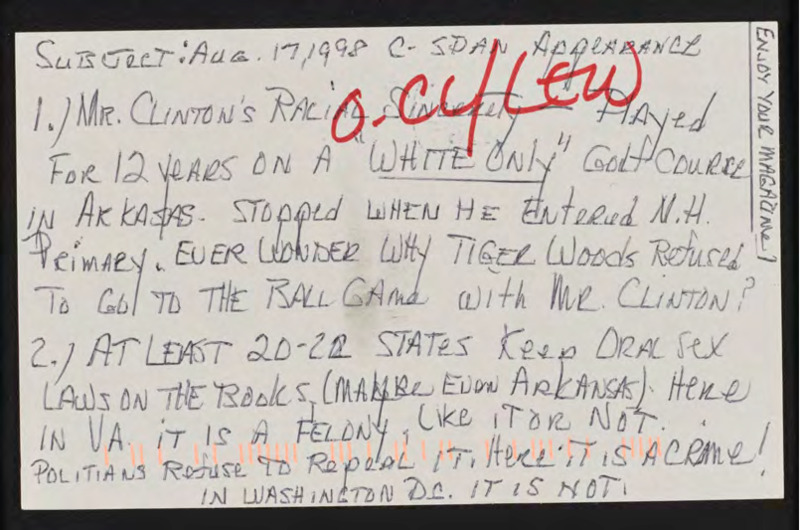 SUBJECT: AUG. 17, 1998 C-SPAN APPEARANCE
O-CY/LEW
1.) MR. CLINTON'S RACIAL SINCERETY — PLAYED
FOR 12 YEARS ON A "WHITE ONLY" GOLF COURSE
IN ARKASAS. STOPPED WHEN HE ENTERED N.H.
PRIMARY. EVER WONDER WHY TIGER WOODS REFUSED
TO GO TO THE BALL GAME WITH MR. CLINTON?
2.) AT LEAST 20-22 STATES KEEP ORAL SEX
LAWS ON THE BOOKS, (MAYBE EVEN ARKANSAS). HERE
IN VA. IT IS A FELONY, LIKE IT OR NOT.
POLITIANS REFUSE TO REPEAL IT. HERE IT IS A CRIME!
IN WASHINGTON D.C. IT IS NOT!
ENJOY YOUR MAGAZINE!